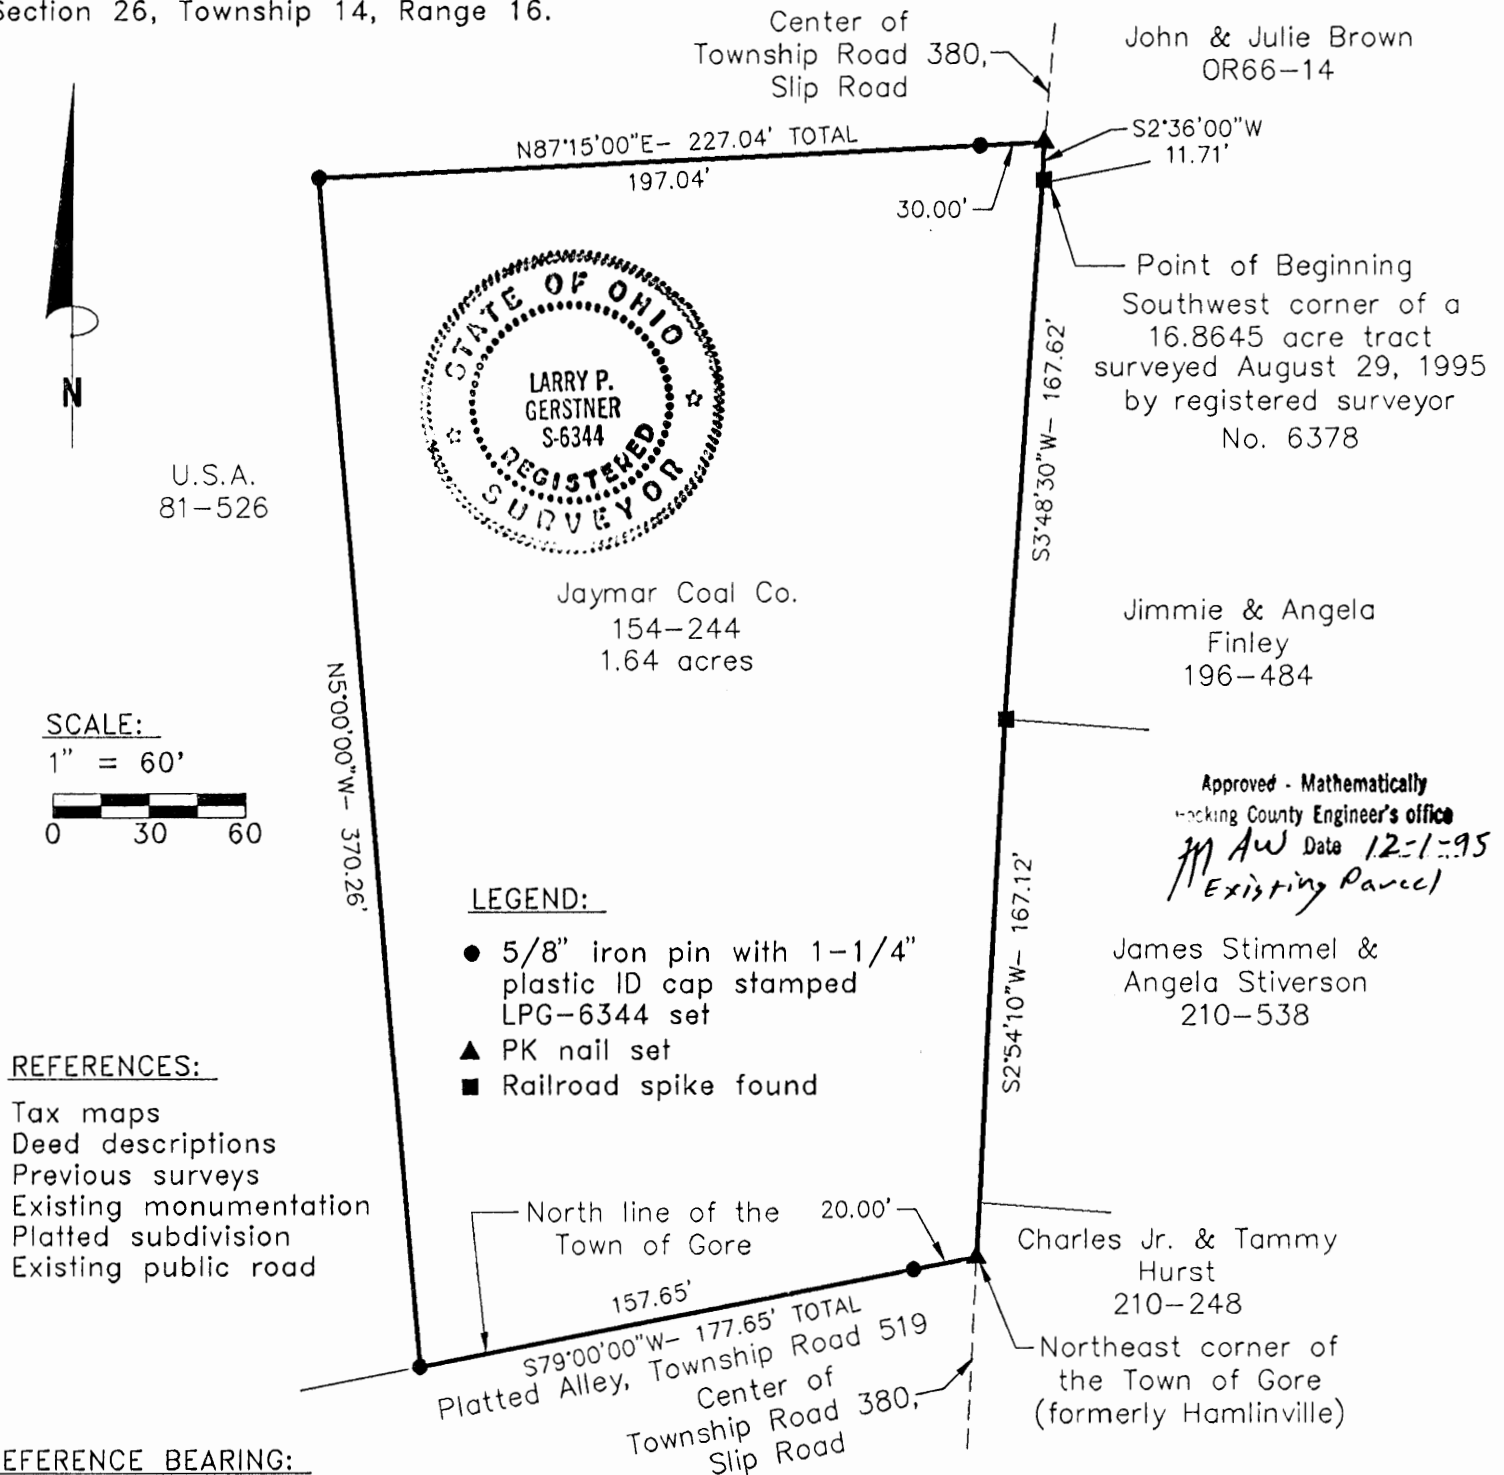 Section 26, Township 14, Range 16.
Center of
Township Road 380,
Slip Road
John & Julie Brown
OR66-14
N87°15'00"E- 227.04' TOTAL
197.04'
30.00'
S2°36'00"W
11.71'
Point of Beginning
Southwest corner of a
16.8645 acre tract
surveyed August 29, 1995
by registered surveyor
No. 6378
N
STATE OF OHIO
LARRY P.
GERSTNER
S-6344
REGISTERED
SURVEYOR
U.S.A.
81-526
S3°48'30"W- 167.62'
Jaymar Coal Co.
154-244
1.64 acres
Jimmie & Angela
Finley
196-484
N5°00'00"W- 370.26'
SCALE:
1" = 60'
0 30 60
Approved - Mathematically
County Engineer's office
Date 12-1-95
Existing Parcel
S2°54'10"W- 167.12'
LEGEND:
5/8" iron pin with 1-1/4"
plastic ID cap stamped
LPG-6344 set
PK nail set
Railroad spike found
James Stimmel &
Angela Stiverson
210-538
REFERENCES:
Tax maps
Deed descriptions
Previous surveys
Existing monumentation
Platted subdivision
Existing public road
North line of the
Town of Gore
20.00'
157.65'
S79°00'00"W- 177.65' TOTAL
Platted Alley, Township Road 519
Center of
Township Road 380,
Slip Road
Charles Jr. & Tammy
Hurst
210-248
Northeast corner of
the Town of Gore
(formerly Hamlinville)
EFERENCE BEARING: